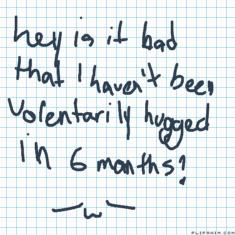 hey is it bad
that I haven't been
volentarily hugged
in 6 months?
FLIPANIM.COM